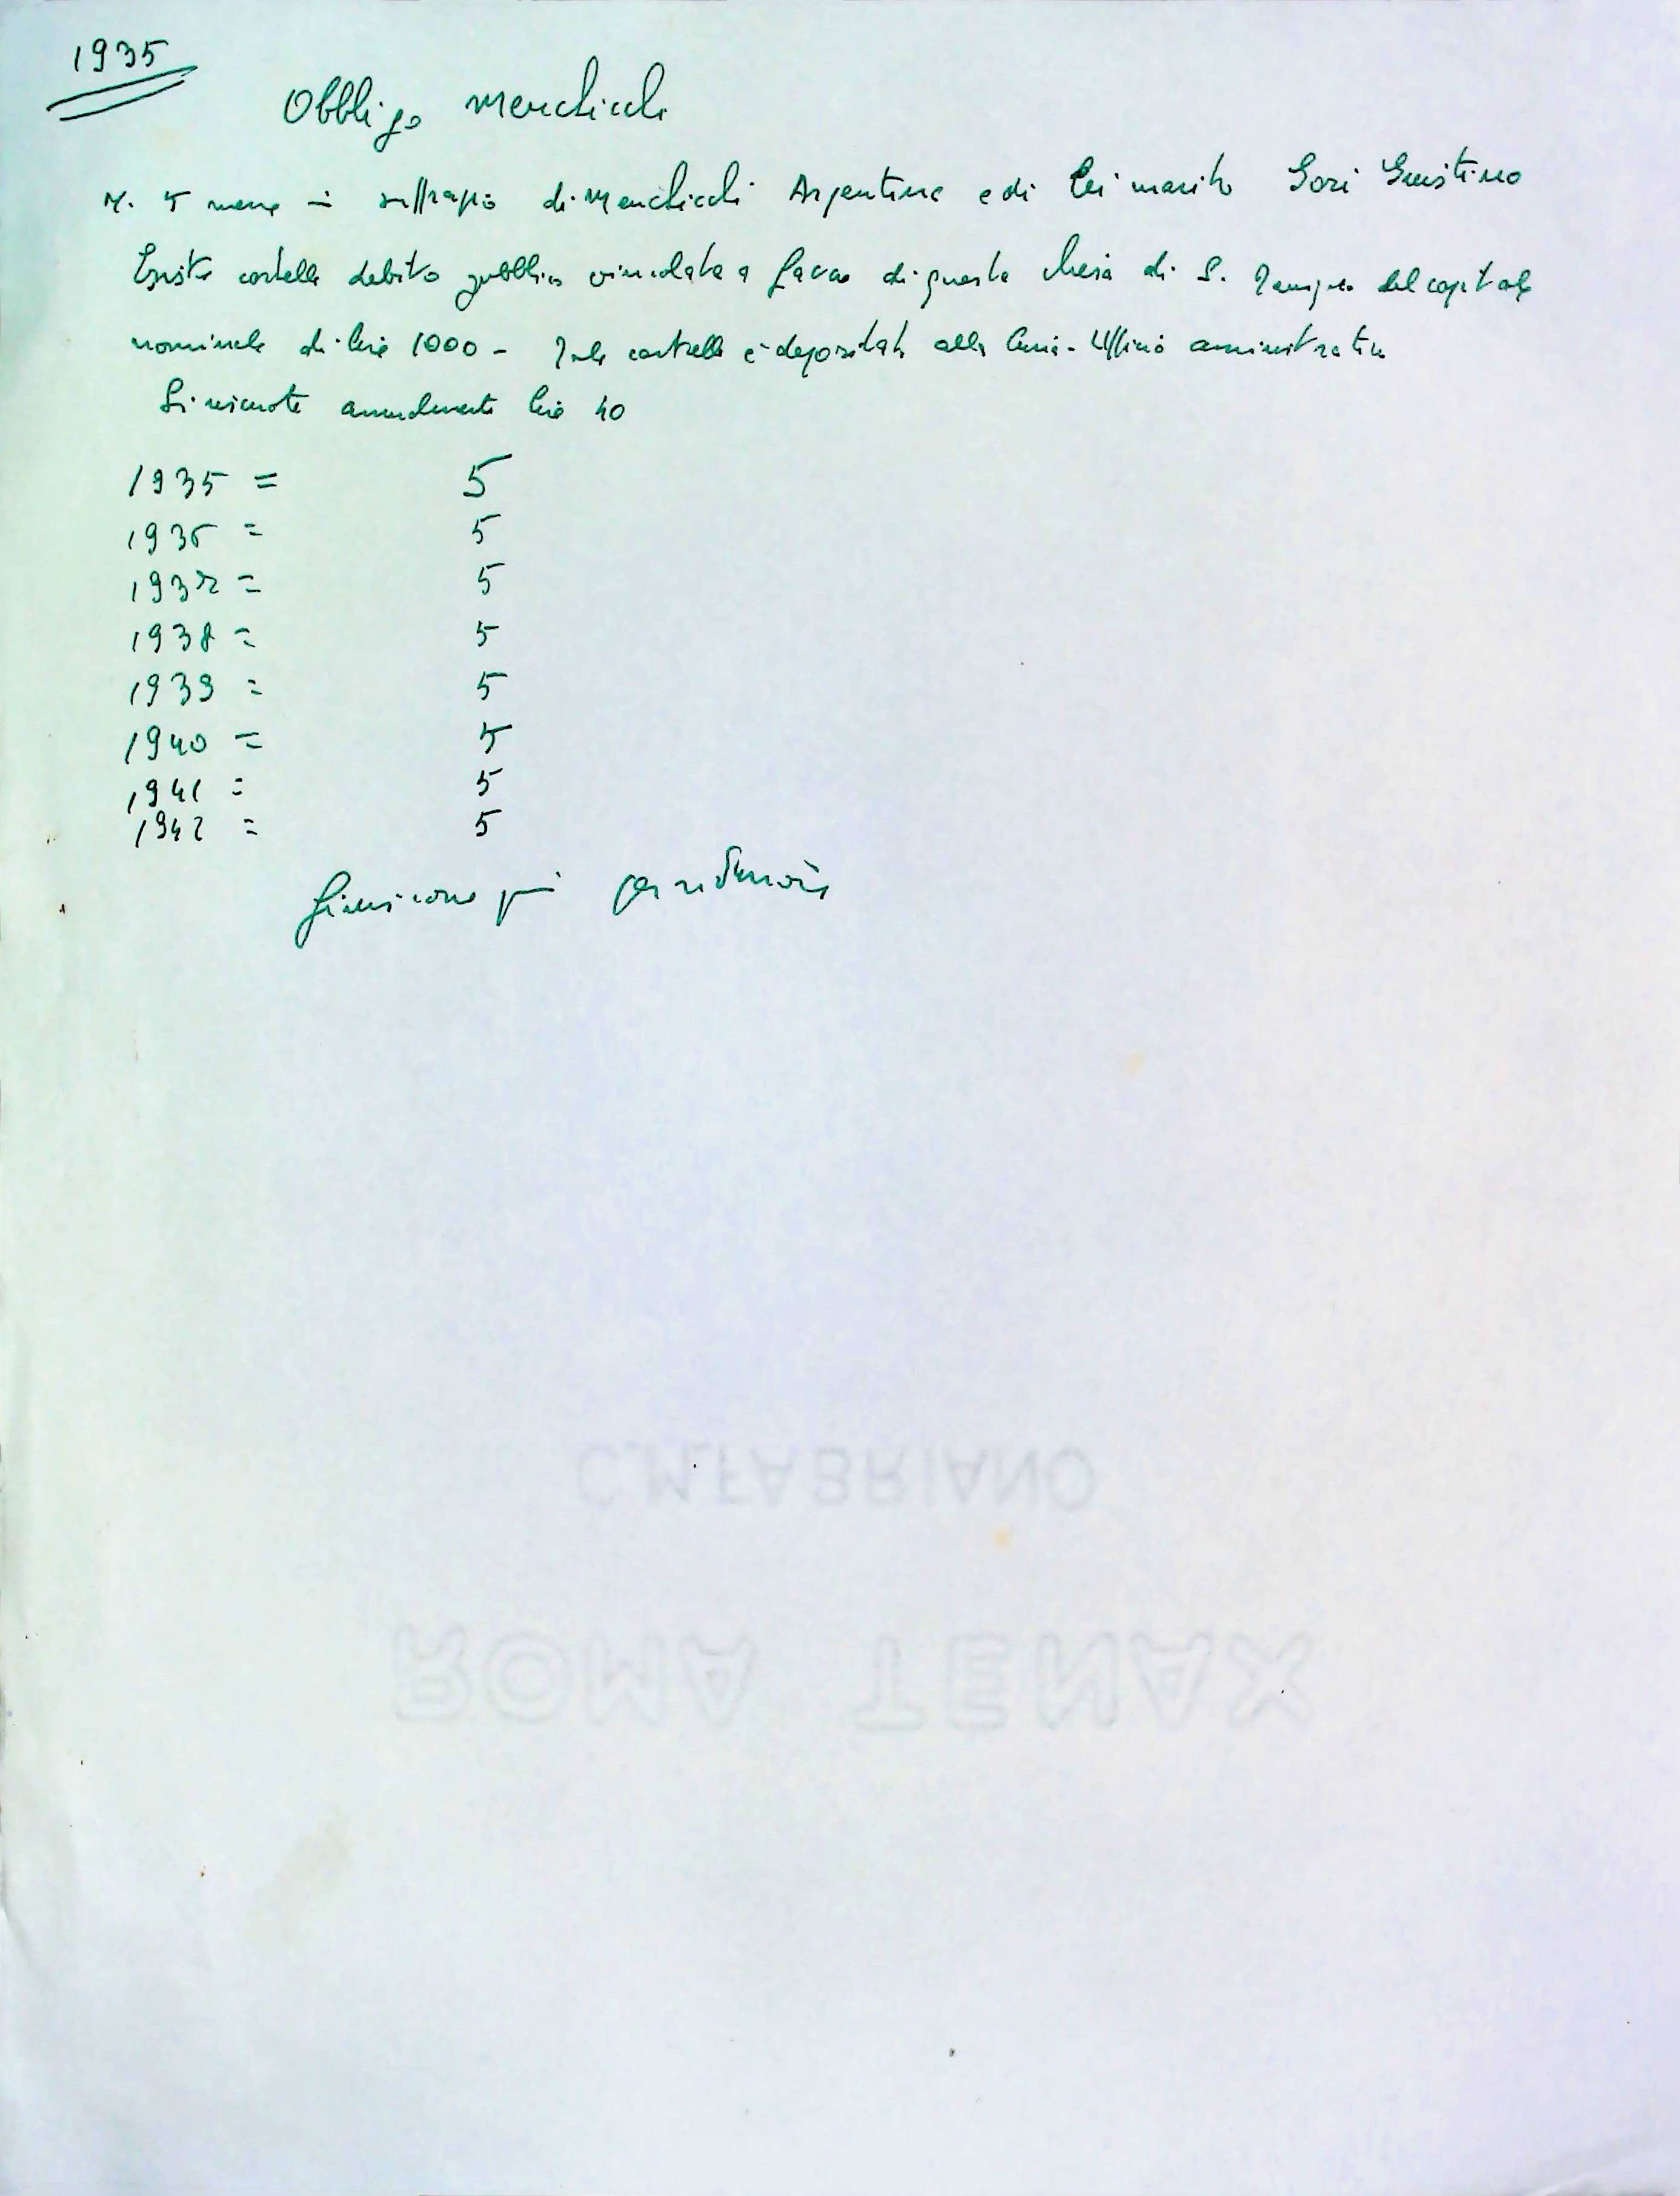 1935
Obbligo Menchicchi
N. 5 messe in suffragio di Menchicchi Argentina e di lei marito Gori Giustino
Esiste cartella debito pubblico vincolata a favore di questa chiesa di S. del capitale
nominale di lire 1000 - Tale cartella è depositata alla Curia - Ufficio amministrativo
Si riscuote annualmente lire 40
1935 = 5
1936 = 5
1937 = 5
1938 = 5
1939 = 5
1940 = 5
1941 = 5
1942 = 5
qui per riduzione
C.M.FABRIANO
ROMA TENAX